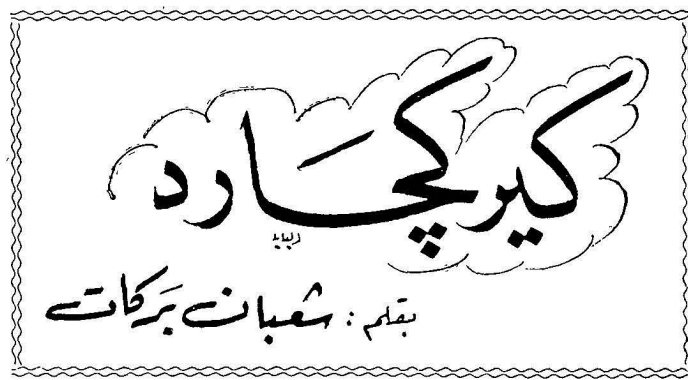 كيركچَارد
بقلم : شعبان بَركات